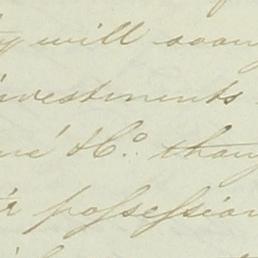 will soon
investments
& Co. than
possession